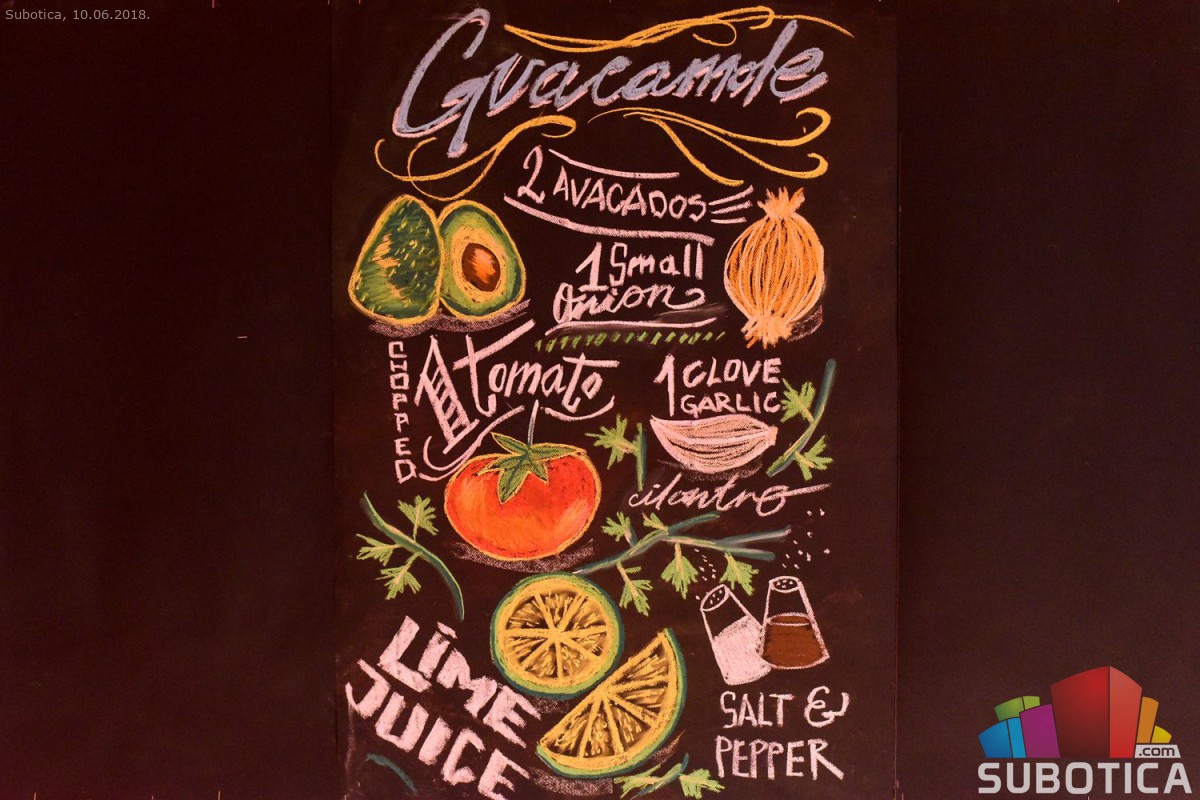 Subotica, 10.06.2018.
Guacamole
2 AVACADOS
1 Small
Onion
CHOPPED
1 tomato
1 CLOVE
GARLIC
cilantro
LIME
JUICE
SALT &
PEPPER
.com
SUBOTICA